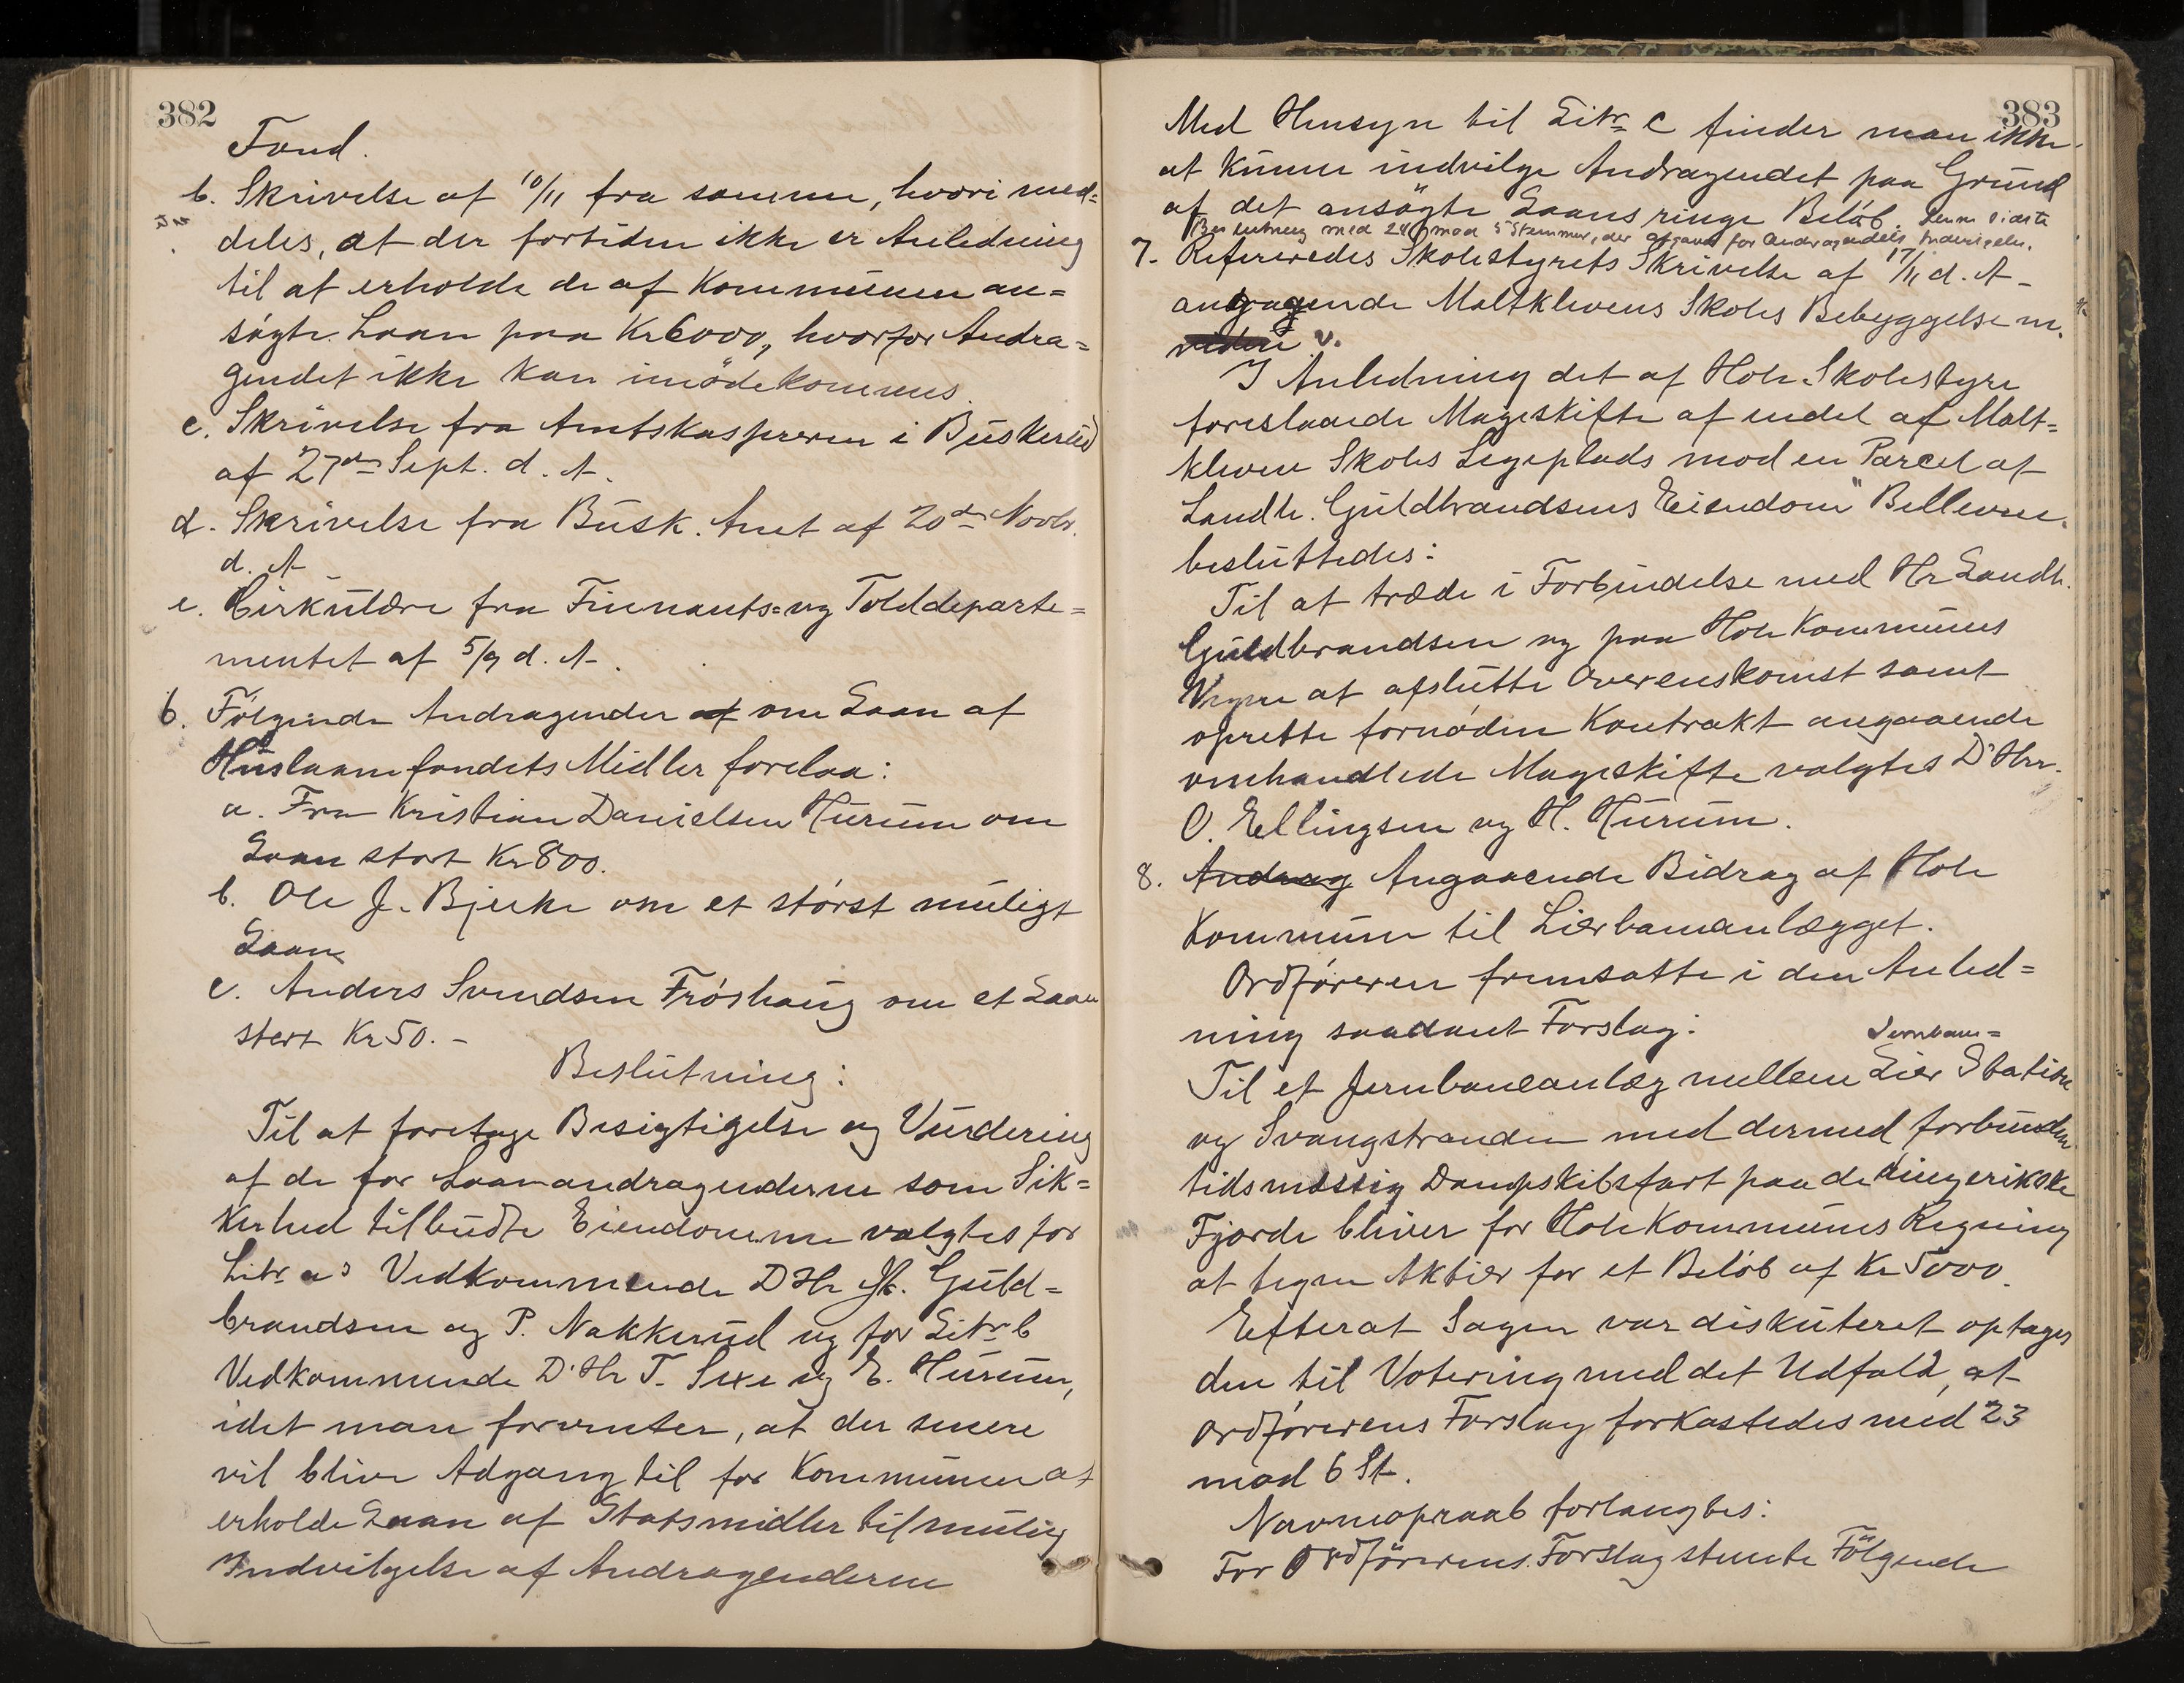 382
Fond.
b. Skrivelse af 10/11 fra samme, hvori med=
deles, at der fortiden ikke er Anledning
til at erholde de af Kommunen an=
søgte Laan paa Kr 6000, hvorfor Andra=
gendet ikke kan imødekommes.
c. Skrivelse fra Amtskassereren i Buskerud
af 27de Sept. d. A.
d. Skrivelse fra Busk. Amt af 20de Novbr.
d. A
e. Cirkulære fra Finants= og Tolddeparte=
mentet af 5/9 d. A.
6. Følgende Andragender af om Laan af
Huslaanefondets Midler forelaa:
a. Fra Kristian Danielsen Hurum om
Laan stort Kr 800.
b. Ole J. Bjerke om et størst muligt
Laan
c. Anders Svendsen Frøshaug om et Laan
stort Kr 50. -
Beslutning:
Til at foretage Besigtigelse og Vurdering
af de for Laanandragenderne som Sik=
kerhed tilbudte Eiendomme valgtes for
Litr. a's Vedkommende D'Hr Jh. Guld=
brandsen og P. Nakkerud og for Litr. b
Vedkommende D'Hr T. Sexe og E. Hurum,
idet man forventer, at der senere
vil blive Adgang til for Kommunen at
erholde Laan af Statsmidler til mulig
Indvilgelse af Andragenderne
383
Med Hensyn til Litr. c finder man ikke
at kunne indvilge Andragendet paa Grund
af det ansøgte Laans ringe Beløb. Denne sidste
Beslutning med 24 mod 5 Stemmer, der afgaves for Andragendets Indvilgelse.
7. Refereredes Skolestyrets Skrivelse af 17/11 d. A-
angaaende Maltklevens Skoles Bebyggelse m.
v.
I Anledning det af Hole Skolestyre
foreslaaede Mageskifte af endel af Malt=
kleven Skoles Legeplads mod en Parcel af
Landh. Guldbrandsens Eiendom "Bellevue"
besluttedes:
Til at træde i Forbindelse med Hr Landh.
Guldbrandsen og paa Hole Kommunes
Vegne at afslutte Overenskomst samt
oprette fornøden Kontrakt angaaende
omhandlede Mageskifte valgtes D'Hrr.
O. Ellingsen og H. Hurum.
8. Andrag Angaaende Bidrag af Hole
Kommune til Lierbaneanlægget.
Ordføreren fremsatte i den Anled=
ning saadant Forslag:
Jernbane=
Til et Jernbaneanlæg mellem Lier Station
og Svangstranden med dermed forbunden
tidsmæssig Dampskibsfart paa de Ringerikske
Fjorde bliver for Hole Kommunes Regning
at tegne Aktier for et Beløb af Kr 5000.
Efterat Sagen var diskuteret optages
den til Votering med det Udfald, at
Ordførerens Forslag forkastedes med 23
mod 6 St.
Navneopraab forlangtes:
For Ordførerens Forslag stemte Følgende